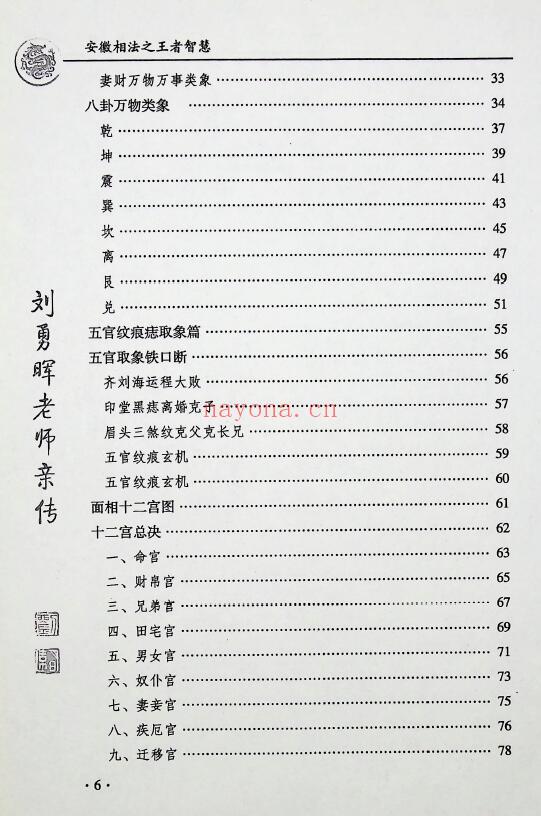 安徽相法之王者智慧
妻财万物万事类象 33
八卦万物类象 34
乾 37
坤 39
震 41
巽 43
坎 45
离 47
艮 49
兑 51
五官纹痕痣取象篇 55
五官取象铁口断 56
齐刘海运程大败 56
印堂黑痣离婚克子 57
眉头三煞纹克父克长兄 58
五官纹痕玄机 59
五官纹痕玄机 60
面相十二宫图 61
十二宫总决 62
一、命宫 63
二、财帛宫 65
三、兄弟宫 67
四、田宅宫 69
五、男女宫 71
六、奴仆宫 73
七、妻妾宫 75
八、疾厄宫 76
九、迁移宫 78
·6·
刘勇晖老师亲传
nayona.cn